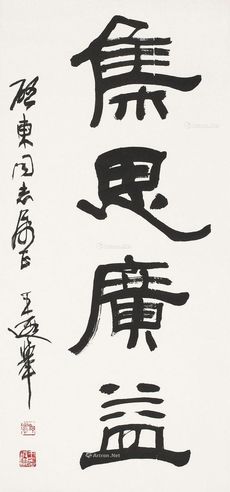 集思廣益
啟東同志屬正
王遐舉
Artron.Net